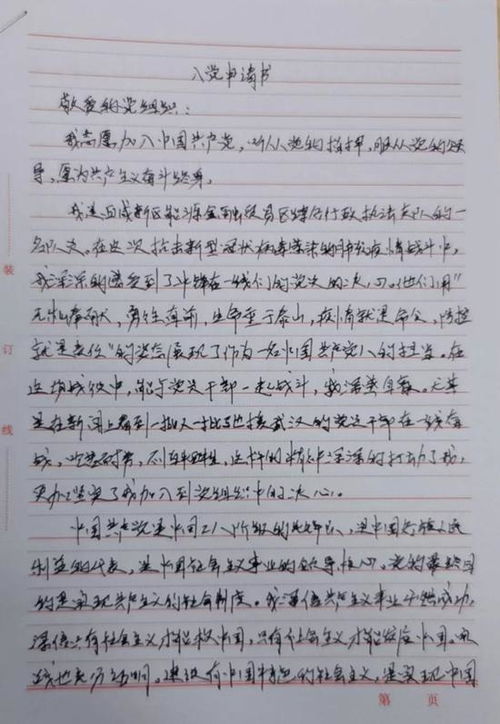 入党申请书
敬爱的党组织：
我志愿加入中国共产党，听从党的指挥，服从党的领
导，愿为共产主义奋斗终身。
我是西咸新区能源金贸区特勤行政执法大队的一
名队员。在这次抗击新型冠状病毒感染的肺炎疫情战斗中，
我深深的感受到了冲锋在一线们的党员的决心。他们用"
无惧，勇往直前，生命重于泰山，疫情就是命令，防控
就是责任"的姿态展现了作为一名中国共产党人的担当。在
这场战役中，能与党员干部一起战斗，我深感自豪。尤其
是在新闻上看到一批又一批支援武汉的党员干部在一线奋
战，吃苦耐劳，不怕牺牲，这样的精神深深的打动了我，
更加坚定了我加入到党组织中的决心。
中国共产党是中国工人阶级的先锋队，是中国各族人民
利益的代表，是中国社会主义事业的领导核心。党的最终目
的是实现共产主义的社会制度。我深信共产主义事业必然成功，
深信只有社会主义才能救中国，只有社会主义才能发展中国。实
践也充分证明。建设有中国特色的社会主义，是实现中国
装
订
线
第 页